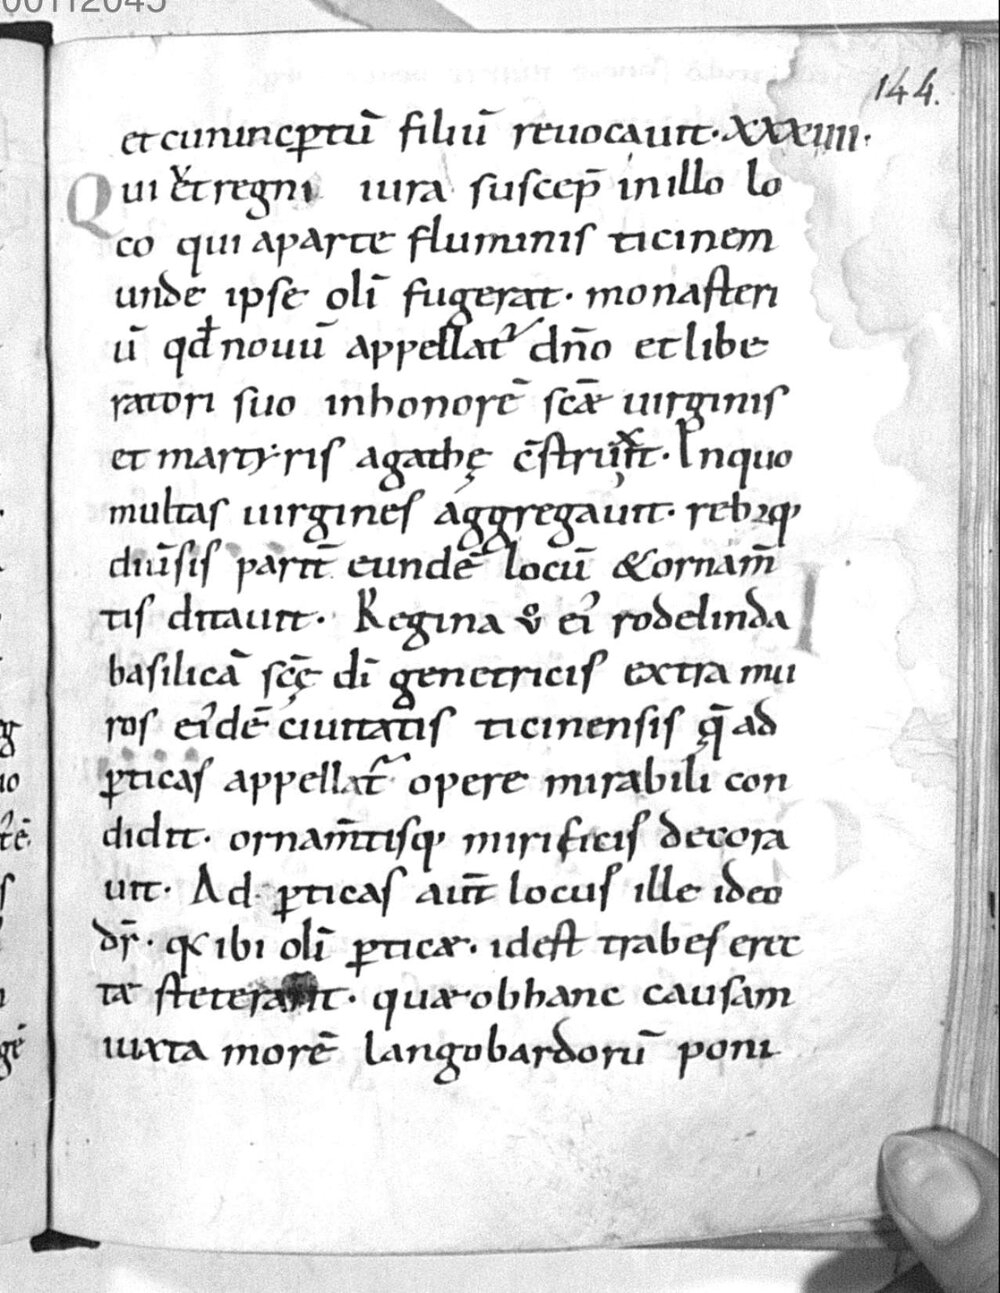 00112045
144.
et cunincptū filiū reuocauit· XXXIIII·
Qui ut regni iura suscep̄ in illo lo
co qui aparte fluminis ticinem
unde ipse oli̅ fugerat· monasteri
ū qđ nouū appellat᷒ dn̄o et libe
ratori suo inhonorē sc̄æ uirginis
et martyris agathę c̄strux̄it· In quo
multas uirgines aggregauit· rebꝫq;
diūsis partit̄ eundē locū & ornam̄
tis ditauit· Regina ů ei᷒ rodelinda
basilicā sc̄ę di̅ genetricis extra mu
ros ei᷒dē ciuitatis ticinensis q̄ ad
ꝑticas appellat᷒ opere mirabili con
didit· ornam̄tisq; mirificis decora
uit· Ad ꝑticas aut̄ locus ille ideo
dr̄· q ibi oli̅ ꝑticæ· idest trabes erec
tæ steterant· quæ obhanc causam
iuxta morē langobardorū poni